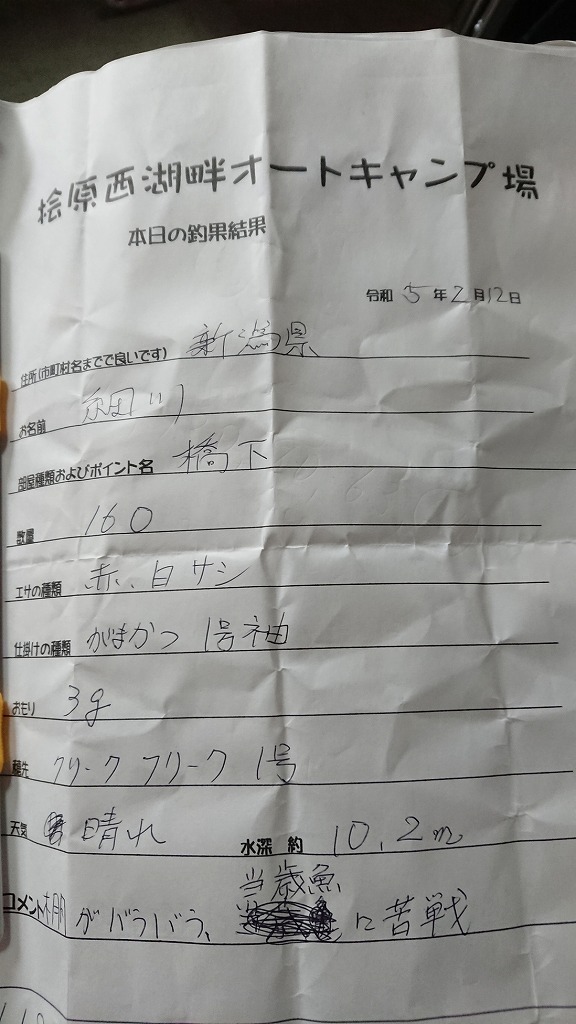 桧原西湖畔オートキャンプ場
本日の釣果結果
令和 5年2月12日
住所(市町村名までで良いです) 新潟県
お名前 細川
部屋種類およびポイント名 橋下
数量 160
エサの種類 赤、白サシ
仕掛けの種類 がまかつ 1号袖
おもり 3g
穂先 クリークフリーク 1号
天気 晴れ 水深 約 10.2m
コメント 棚がバラバラ、当歳魚に苦戦